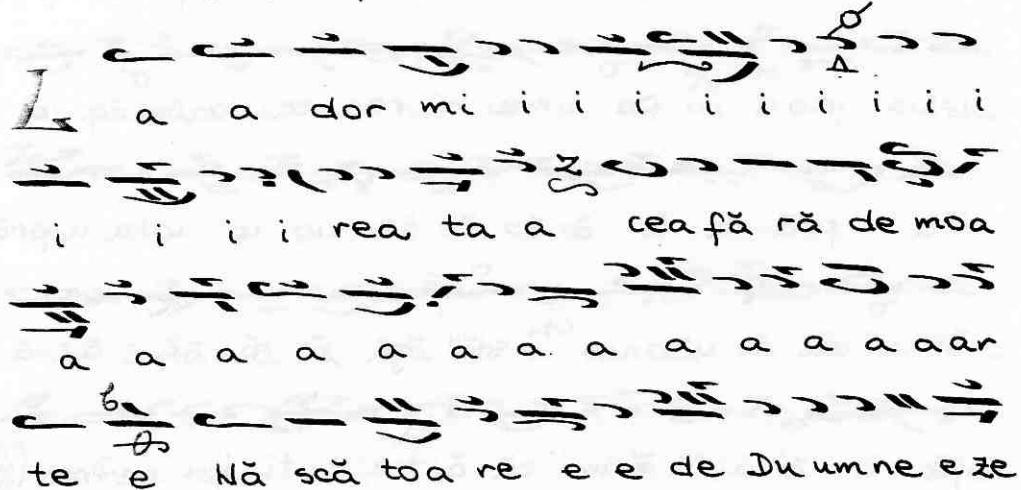 La a dor mi i i i i i i i i i
i i i i rea ta a cea fă ră de moa
a a a a a a a a a a a a ar
te e Nă scă toa re e e de Du um ne e ze